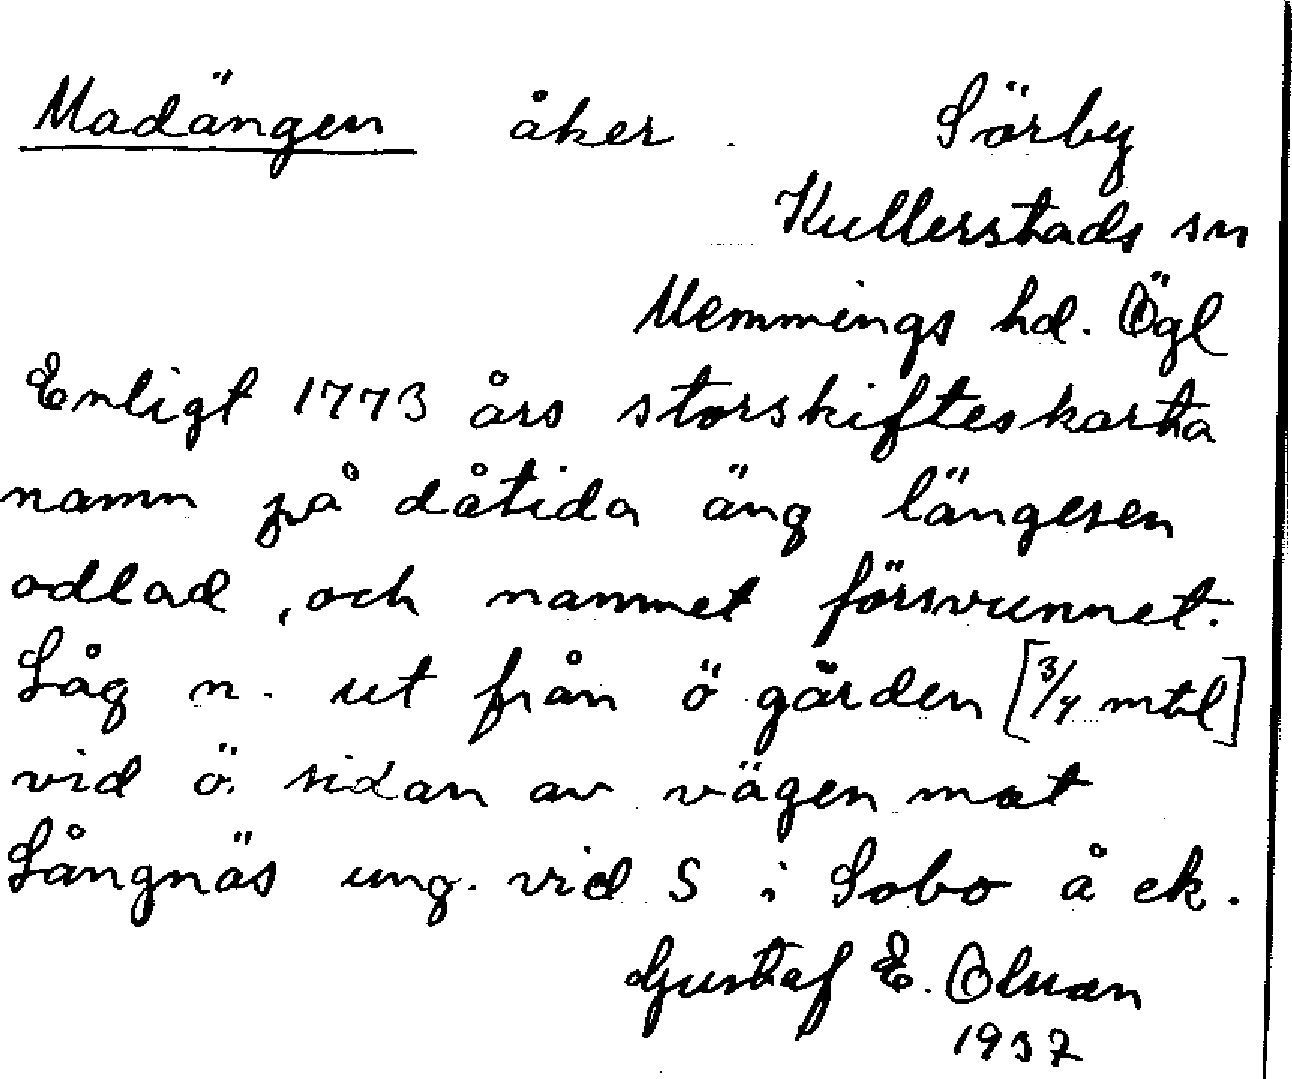 Madängen åker. Sörby
Kullerstads sn
Memmings hd. Ögl
Enligt 1773 års storskifteskarta
namn på dåtida äng längesen
odlad, och namnet försvunnet.
Låg n. ut från ö gärden [3/4 mtl]
vid ö. sidan av vägen mot
Långnäs ung. vid S i Sobo å ek.
Gustaf E. Olsson
1937